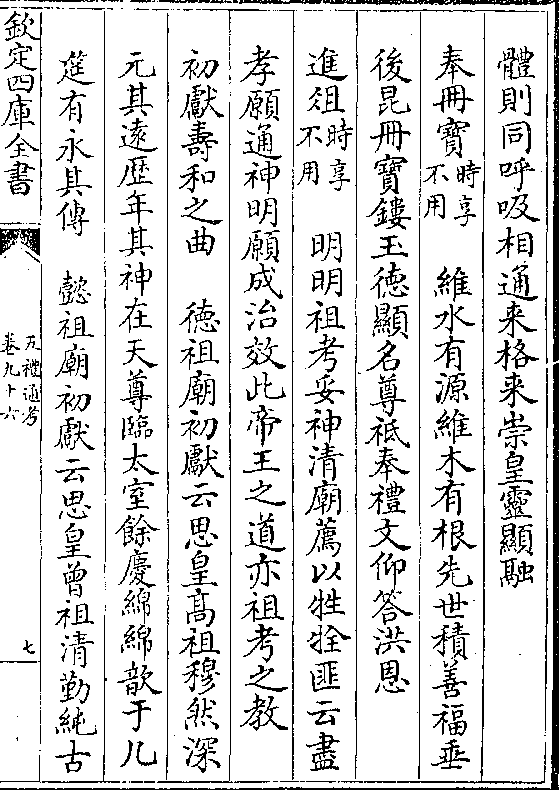 體則同呼吸相通来格来崇皇靈顯融
奉冊寳時享不用　維水有源維木有根先世積善福垂
後昆冊寳鏤玉德顯名尊祗奉禮文仰答洪恩
進俎時享不用　明明祖考妥神清廟薦以牲牷匪云盡
孝願通神明願成治效此帝王之道亦祖考之教
初獻壽和之曲　德祖廟初獻云思皇髙祖穆然深
元其逺歴年其神在天尊臨太室餘慶綿綿歆于几
筵有永其傳　懿祖廟初獻云思皇曽祖清勤純古
欽定四庫全書
五禮通考
卷九十六
七